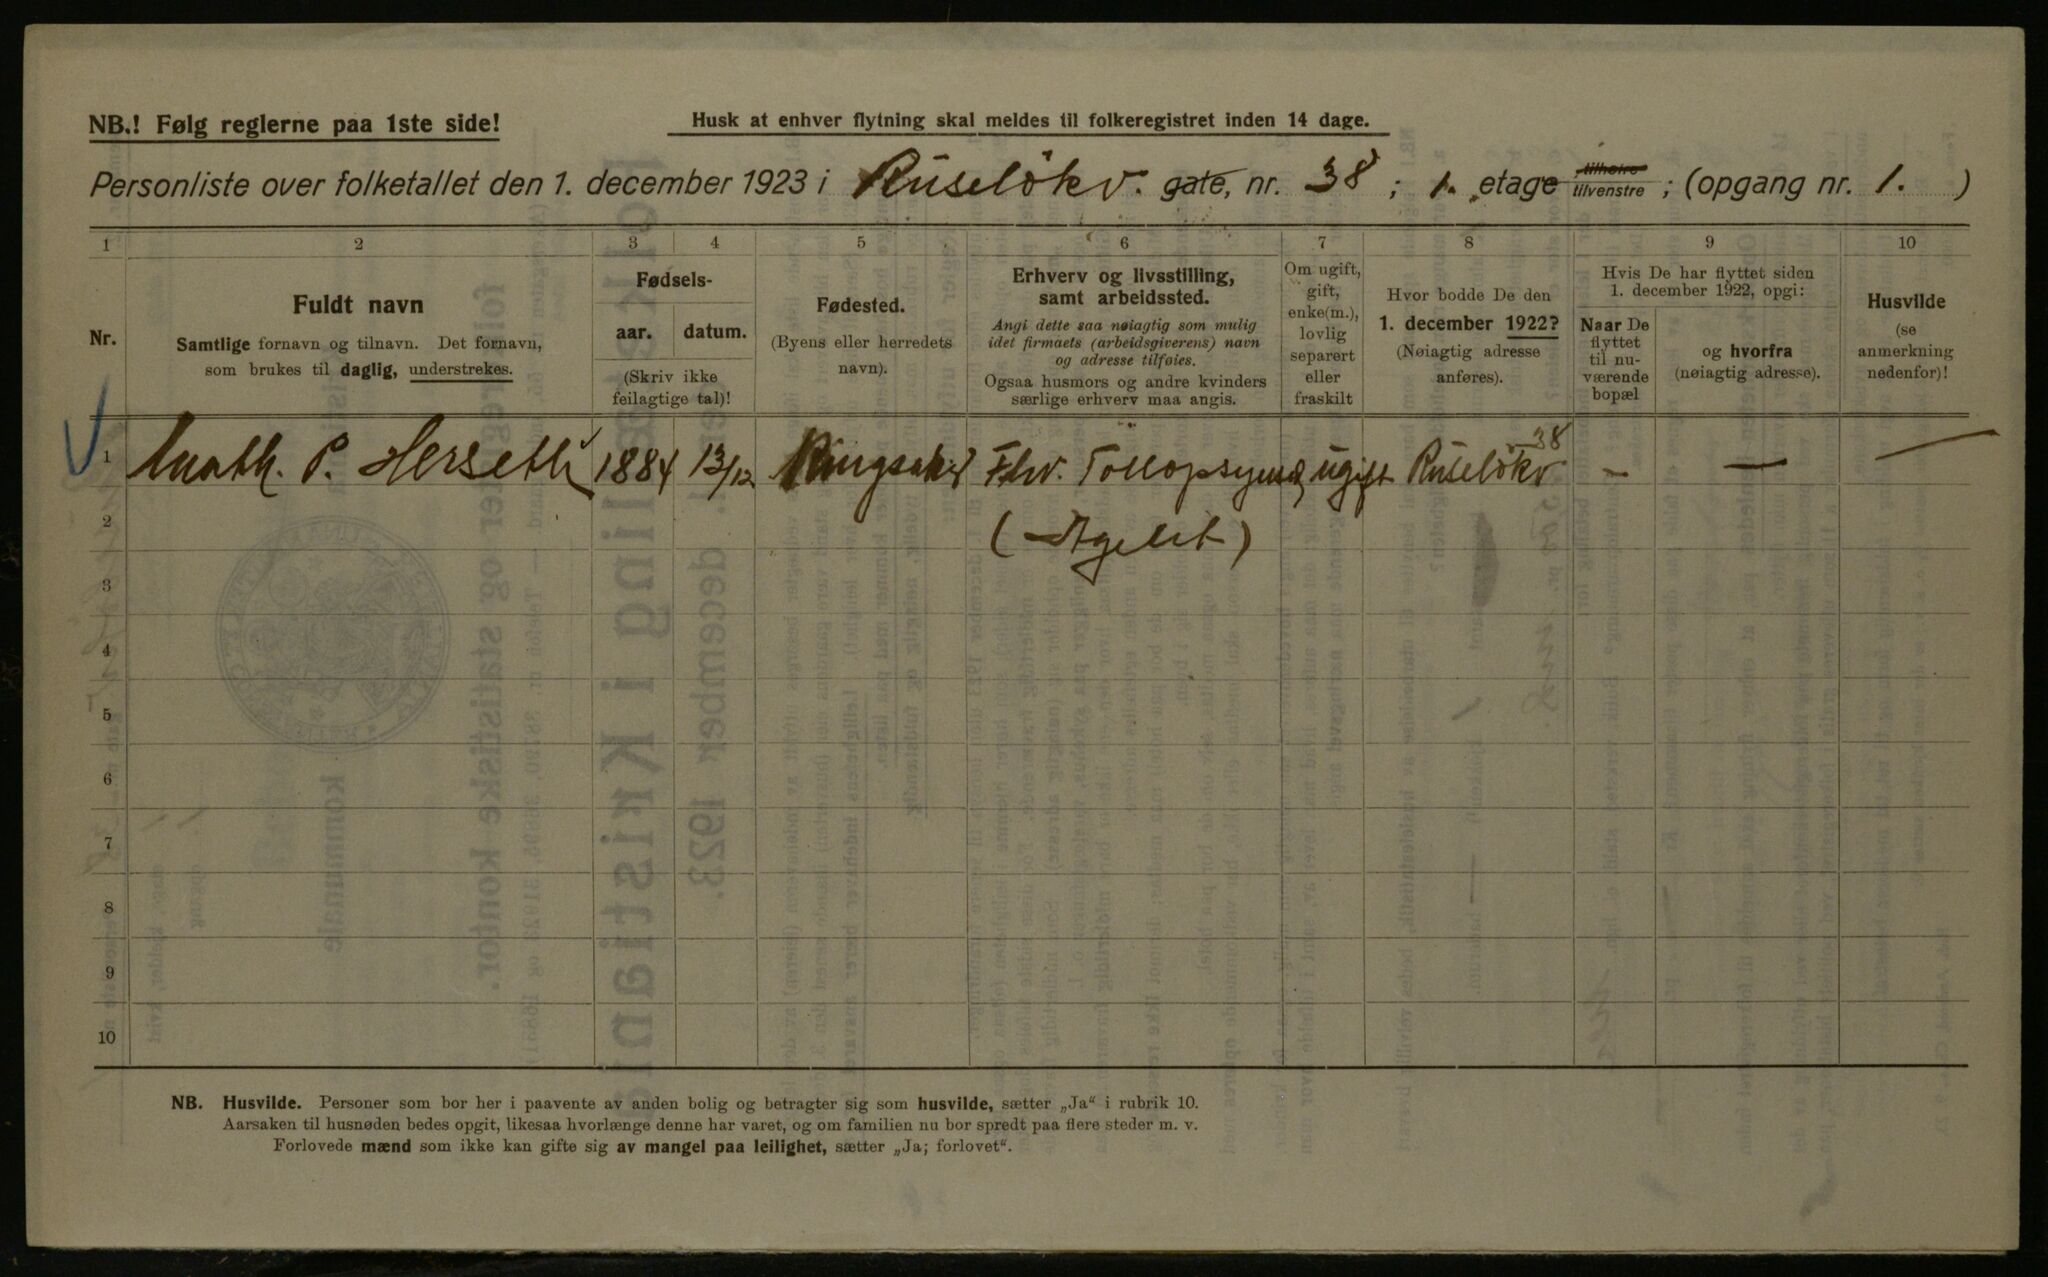 NB.! Følg reglerne paa 1ste side!
Husk at enhver flytning skal meldes til folkeregistret inden 14 dage.
Personliste over folketallet den 1. december 1923 i Ruseløkv. gate, nr. 38 ; 1. etage tilhøire tilvenstre ; (opgang nr. 1. )
1 2 3 4 5 6 7 8 9 10
Nr.
Fuldt navn
Samtlige fornavn og tilnavn. Det fornavn,
som brukes til daglig, understrekes.
Fødsels-
aar. datum.
(Skriv ikke
feilagtige tal)!
Fødested.
(Byens eller herredets
navn).
Erhverv og livsstilling,
samt arbeidssted.
Angi dette saa nøiagtig som mulig
idet firmaets (arbeidsgiverens) navn
og adresse tilføies.
Ogsaa husmors og andre kvinders
særlige erhverv maa angis.
Om ugift,
gift,
enke(m.),
lovlig
separert
eller
fraskilt
Hvor bodde De den
1. december 1922?
(Nøiagtig adresse
anføres).
Hvis De har flyttet siden
1. december 1922, opgi:
Naar De
flyttet
til nu-
værende
bopæl
og hvorfra
(nøiagtig adresse).
Husvilde
(se
anmerkning
nedenfor)!
1 Math. P. Herseth 1884 13/12 Ringsaker Fhv. ugift Ruseløkv 38 - — —
2
3
4
5
6
7
8
9
10
NB. Husvilde. Personer som bor her i paavente av anden bolig og betragter sig som husvilde, sætter „Ja“ i rubrik 10.
Aarsaken til husnøden bedes opgit, likesaa hvorlænge denne har varet, og om familien nu bor spredt paa flere steder m. v.
Forlovede mænd som ikke kan gifte sig av mangel paa leilighet, sætter „Ja; forlovet“.